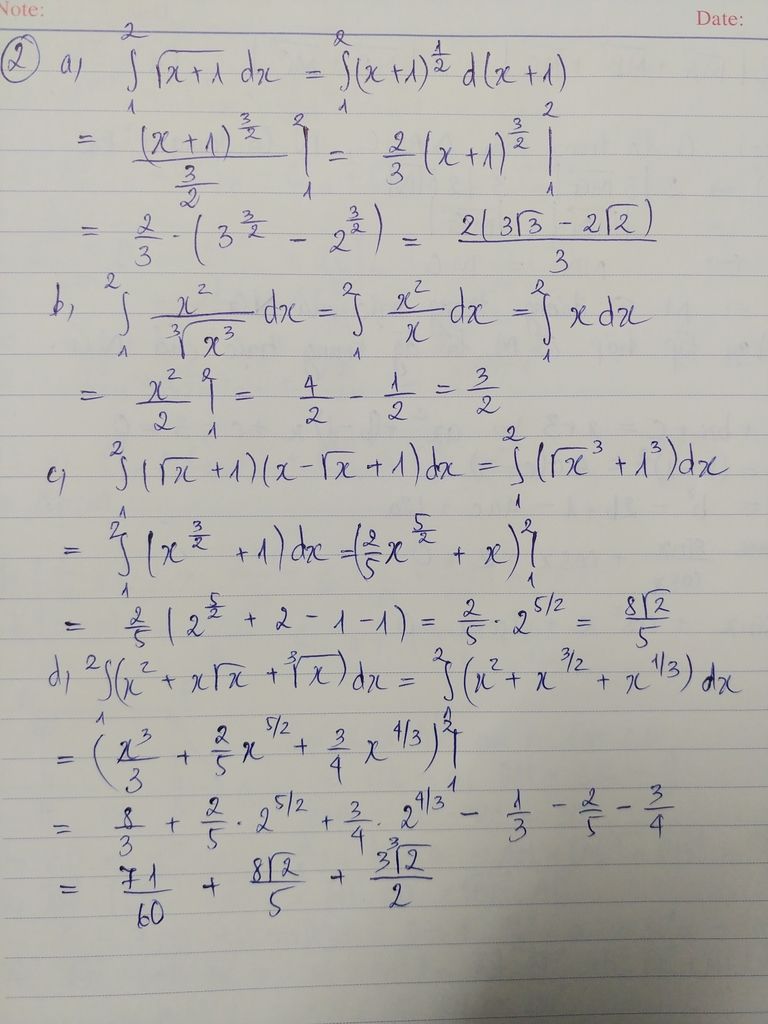 Note:
Date:
② a, ∫₁² √(x+1) dx = ∫₁² (x+1)^(1/2) d(x+1)
= (x+1)^(3/2) / (3/2) |₁² = 2/3 (x+1)^(3/2) |₁²
= 2/3 · (3^(3/2) − 2^(3/2)) = 2(3√3 − 2√2) / 3
b, ∫₁² x² / ∛(x³) dx = ∫₁² x²/x dx = ∫₁² x dx
= x²/2 |₁² = 4/2 − 1/2 = 3/2
c, ∫₁² (√x + 1)(x − √x + 1) dx = ∫₁² (√x³ + 1³) dx
= ∫₁² (x^(3/2) + 1) dx = (2/5 x^(5/2) + x) |₁²
= 2/5 (2^(5/2) + 2 − 1 − 1) = 2/5 · 2^(5/2) = 8√2/5
d, ∫₁² (x² + x√x + ∛x) dx = ∫₁² (x² + x^(3/2) + x^(1/3)) dx
= (x³/3 + 2/5 x^(5/2) + 3/4 x^(4/3)) |₁²
= 8/3 + 2/5 · 2^(5/2) + 3/4 · 2^(4/3) − 1/3 − 2/5 − 3/4
= 71/60 + 8√2/5 + 3∛2/2